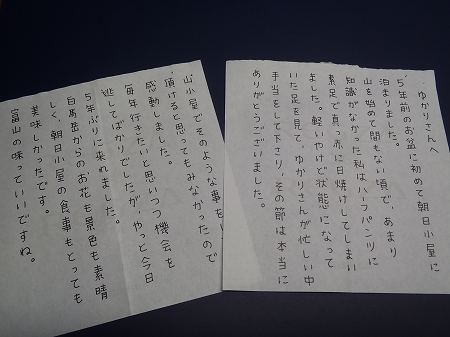 ゆかりさんへ
5年前のお盆に初めて朝日小屋に
泊まりました。
山を始めて間もない頃で、あまり
知識がなかった私はハーフパンツに
素足で真っ赤に日焼けしてしまい
ました。軽いやけど状態になって
いた足を見て、ゆかりさんが忙しい中
手当をして下さり、その節は本当に
ありがとうございました。
山小屋でそのような事をし
頂けると思ってもみなかったので
感動しました。
毎年行きたいと思いつつ機会を
逃してばかりでしたが、やっと今日
5年ぶりに来れました。
白馬岳からのお花も景色も素晴
しく、朝日小屋の食事もとっても
美味しかったです。
富山の味っていいですね。